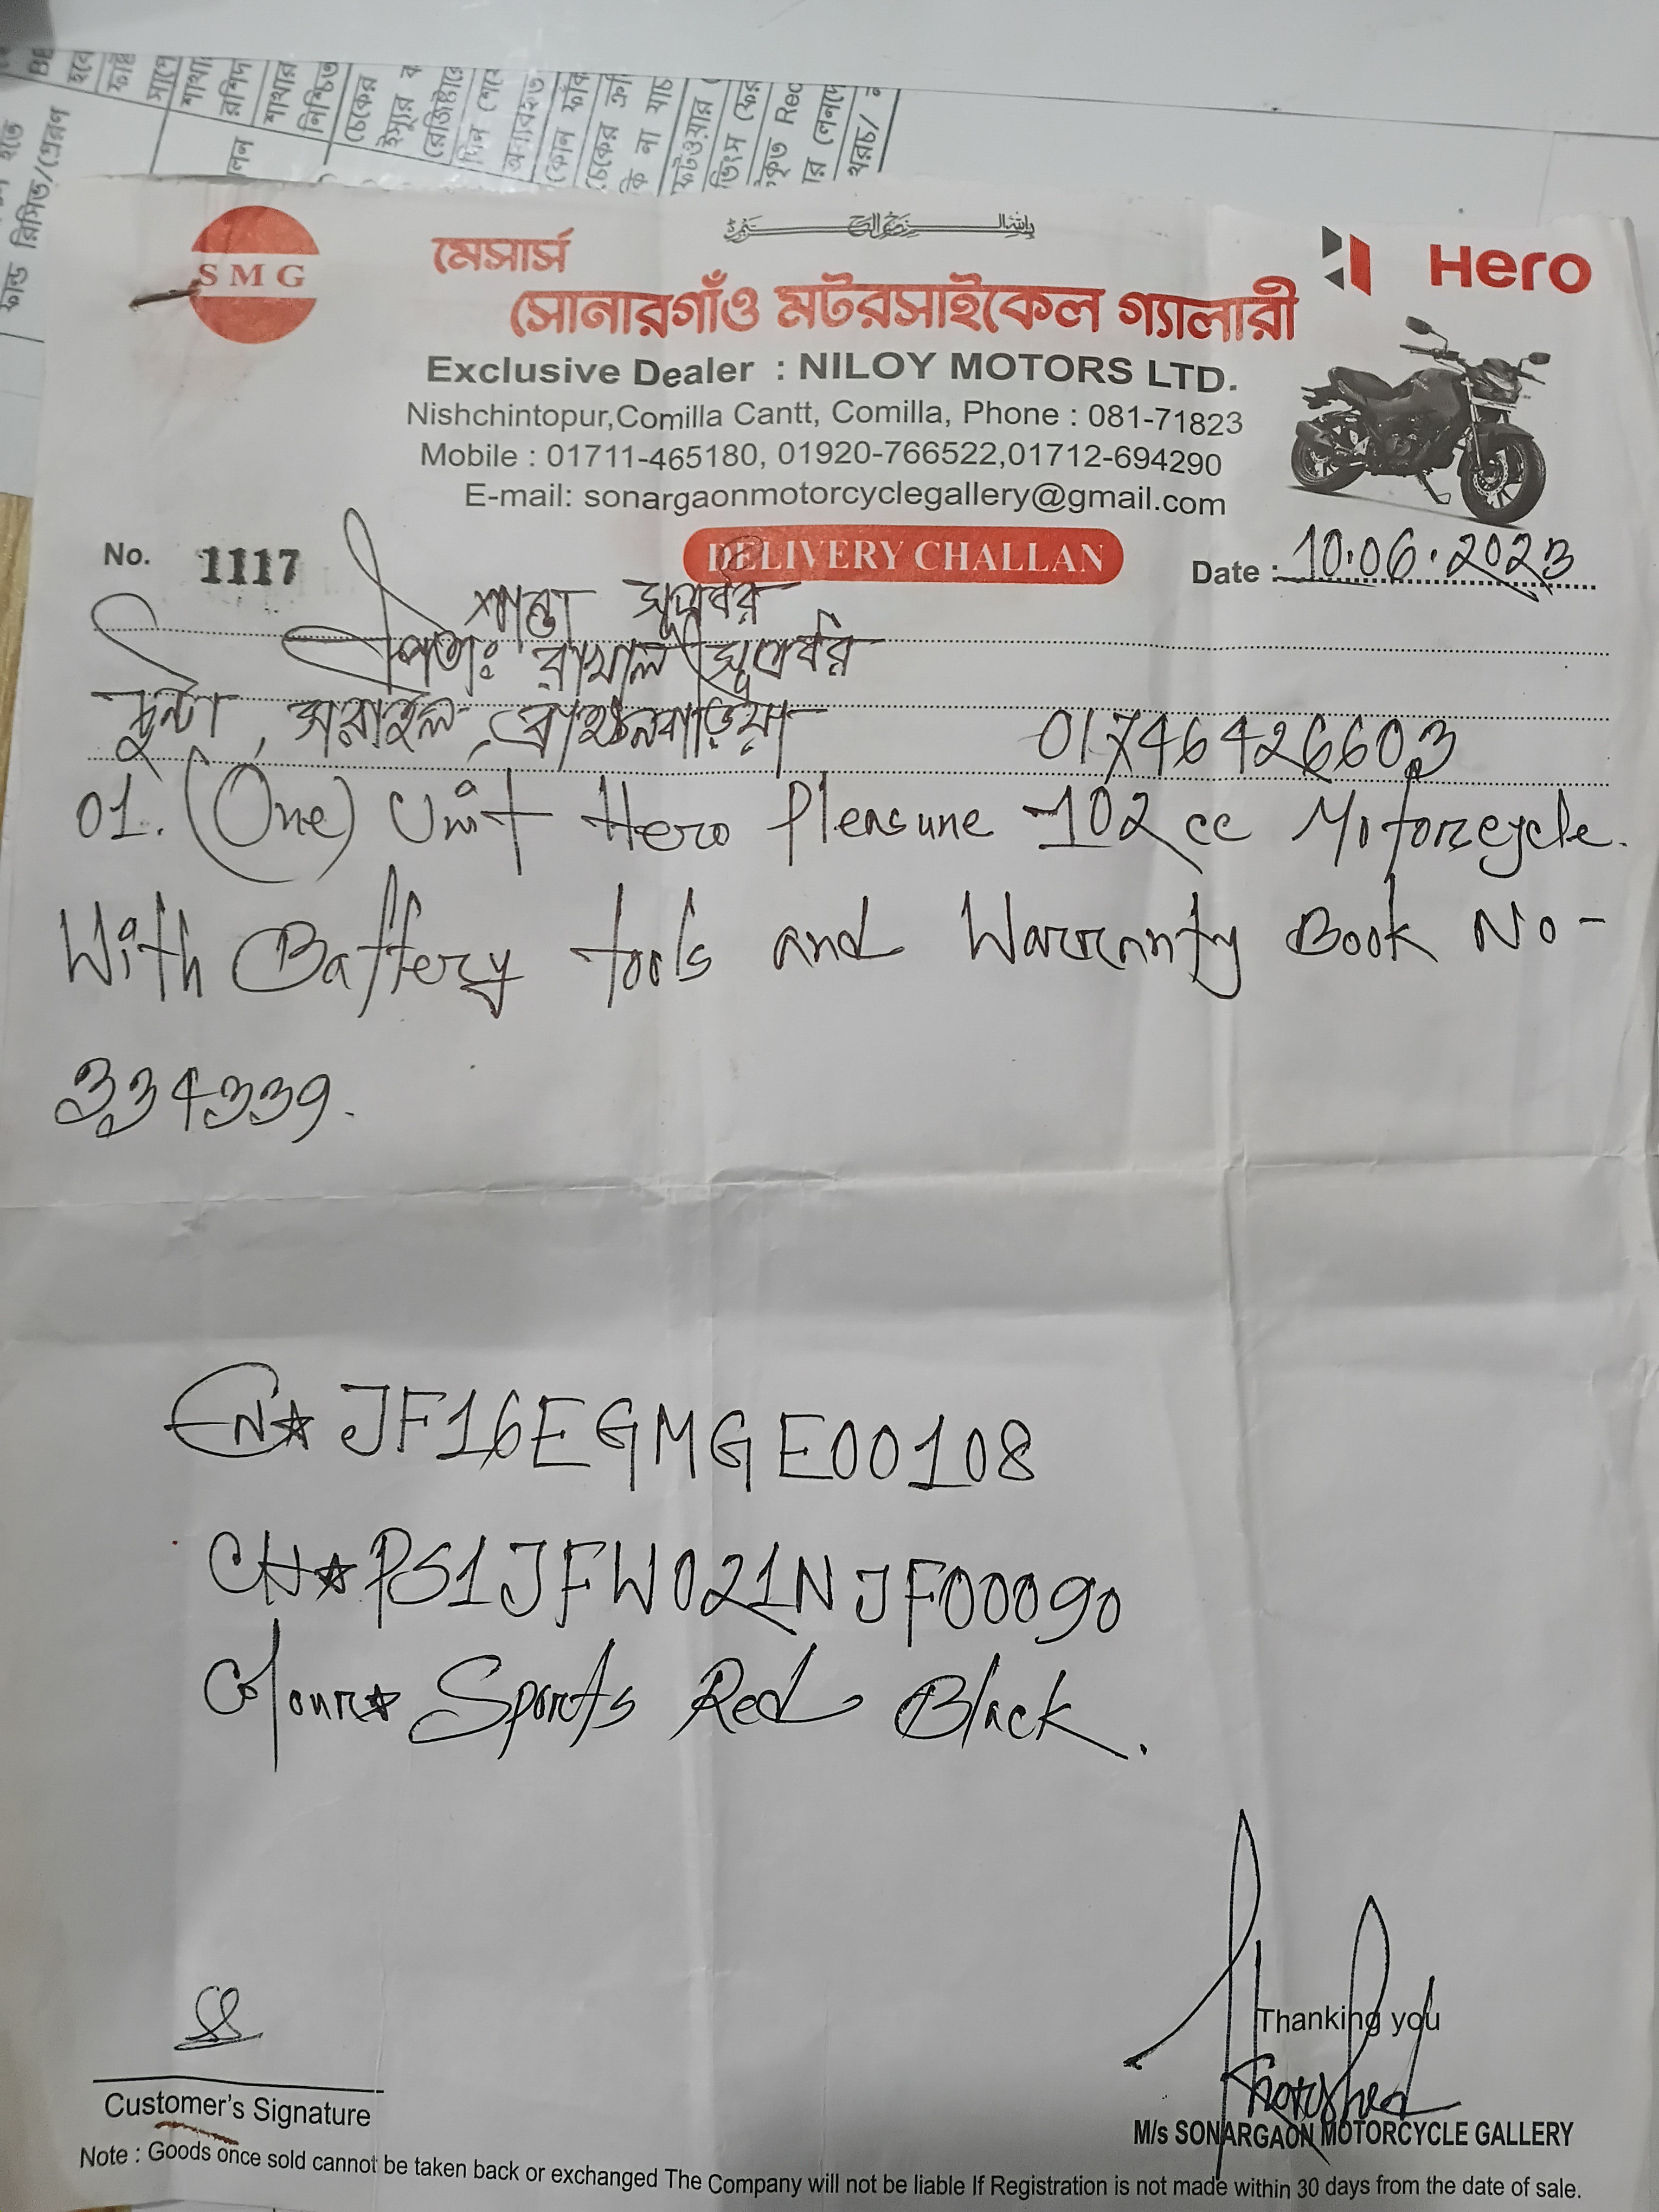 SMG
মেসার্স
Hero
সোনারগাঁও মটরসাইকেল গ্যালারী
Exclusive Dealer : NILOY MOTORS LTD.
Nishchintopur,Comilla Cantt, Comilla, Phone : 081-71823
Mobile : 01711-465180, 01920-766522,01712-694290
E-mail: sonargaonmotorcyclegallery@gmail.com
No. 1117
DELIVERY CHALLAN
Date : 10.06.2023
পিতা: রাখাল সূত্রধর
চুন্টা, সরাইল, ব্রাহ্মনবাড়িয়া 01746426603
01. (One) Unit Hero Pleasune 102 cc Motorcycle.
With Battery tools and Warranty Book No-
334339.
EN* JF16EGMGE00108
CH* PS1JFW021NJF00090
Colour* Sports Red Black.
Thanking you
Customer's Signature
M/s SONARGAON MOTORCYCLE GALLERY
Note : Goods once sold cannot be taken back or exchanged The Company will not be liable If Registration is not made within 30 days from the date of sale.